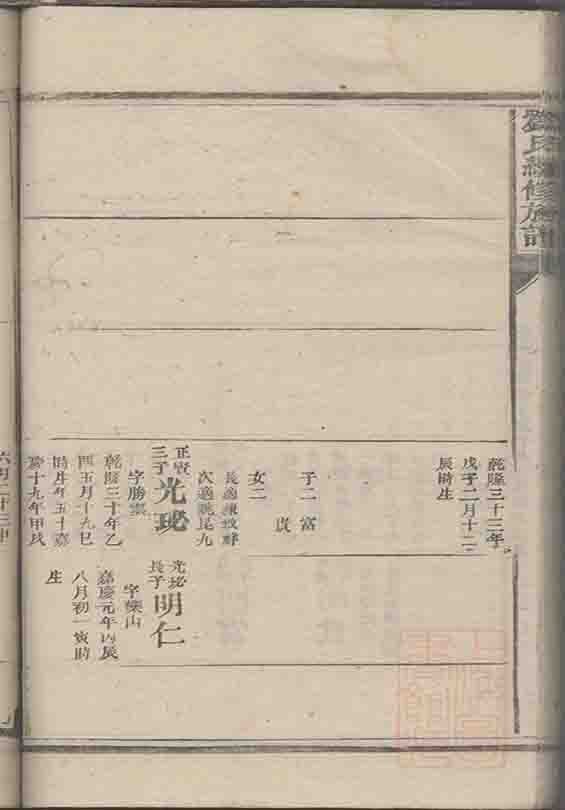 氏續修族譜
乾隆三十三年
戊子二月十二
辰時生
子二 富
貴
女二
長適陳
次適姚昆九
正賢
三子
光珌
字勝
乾隆三十年乙
酉五月十九巳
時生年五十嘉
慶十九年甲戌
光珌
長子
明仁
字樂山
嘉慶元年丙辰
八月初一寅時
生